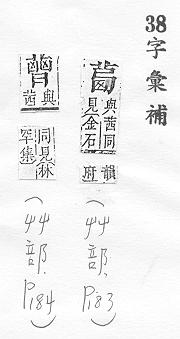 38字彙補
與茜同
見金石
韻
府
(艸部,P.183)
與
茜
同見林
罕集
(艸部,P.184)